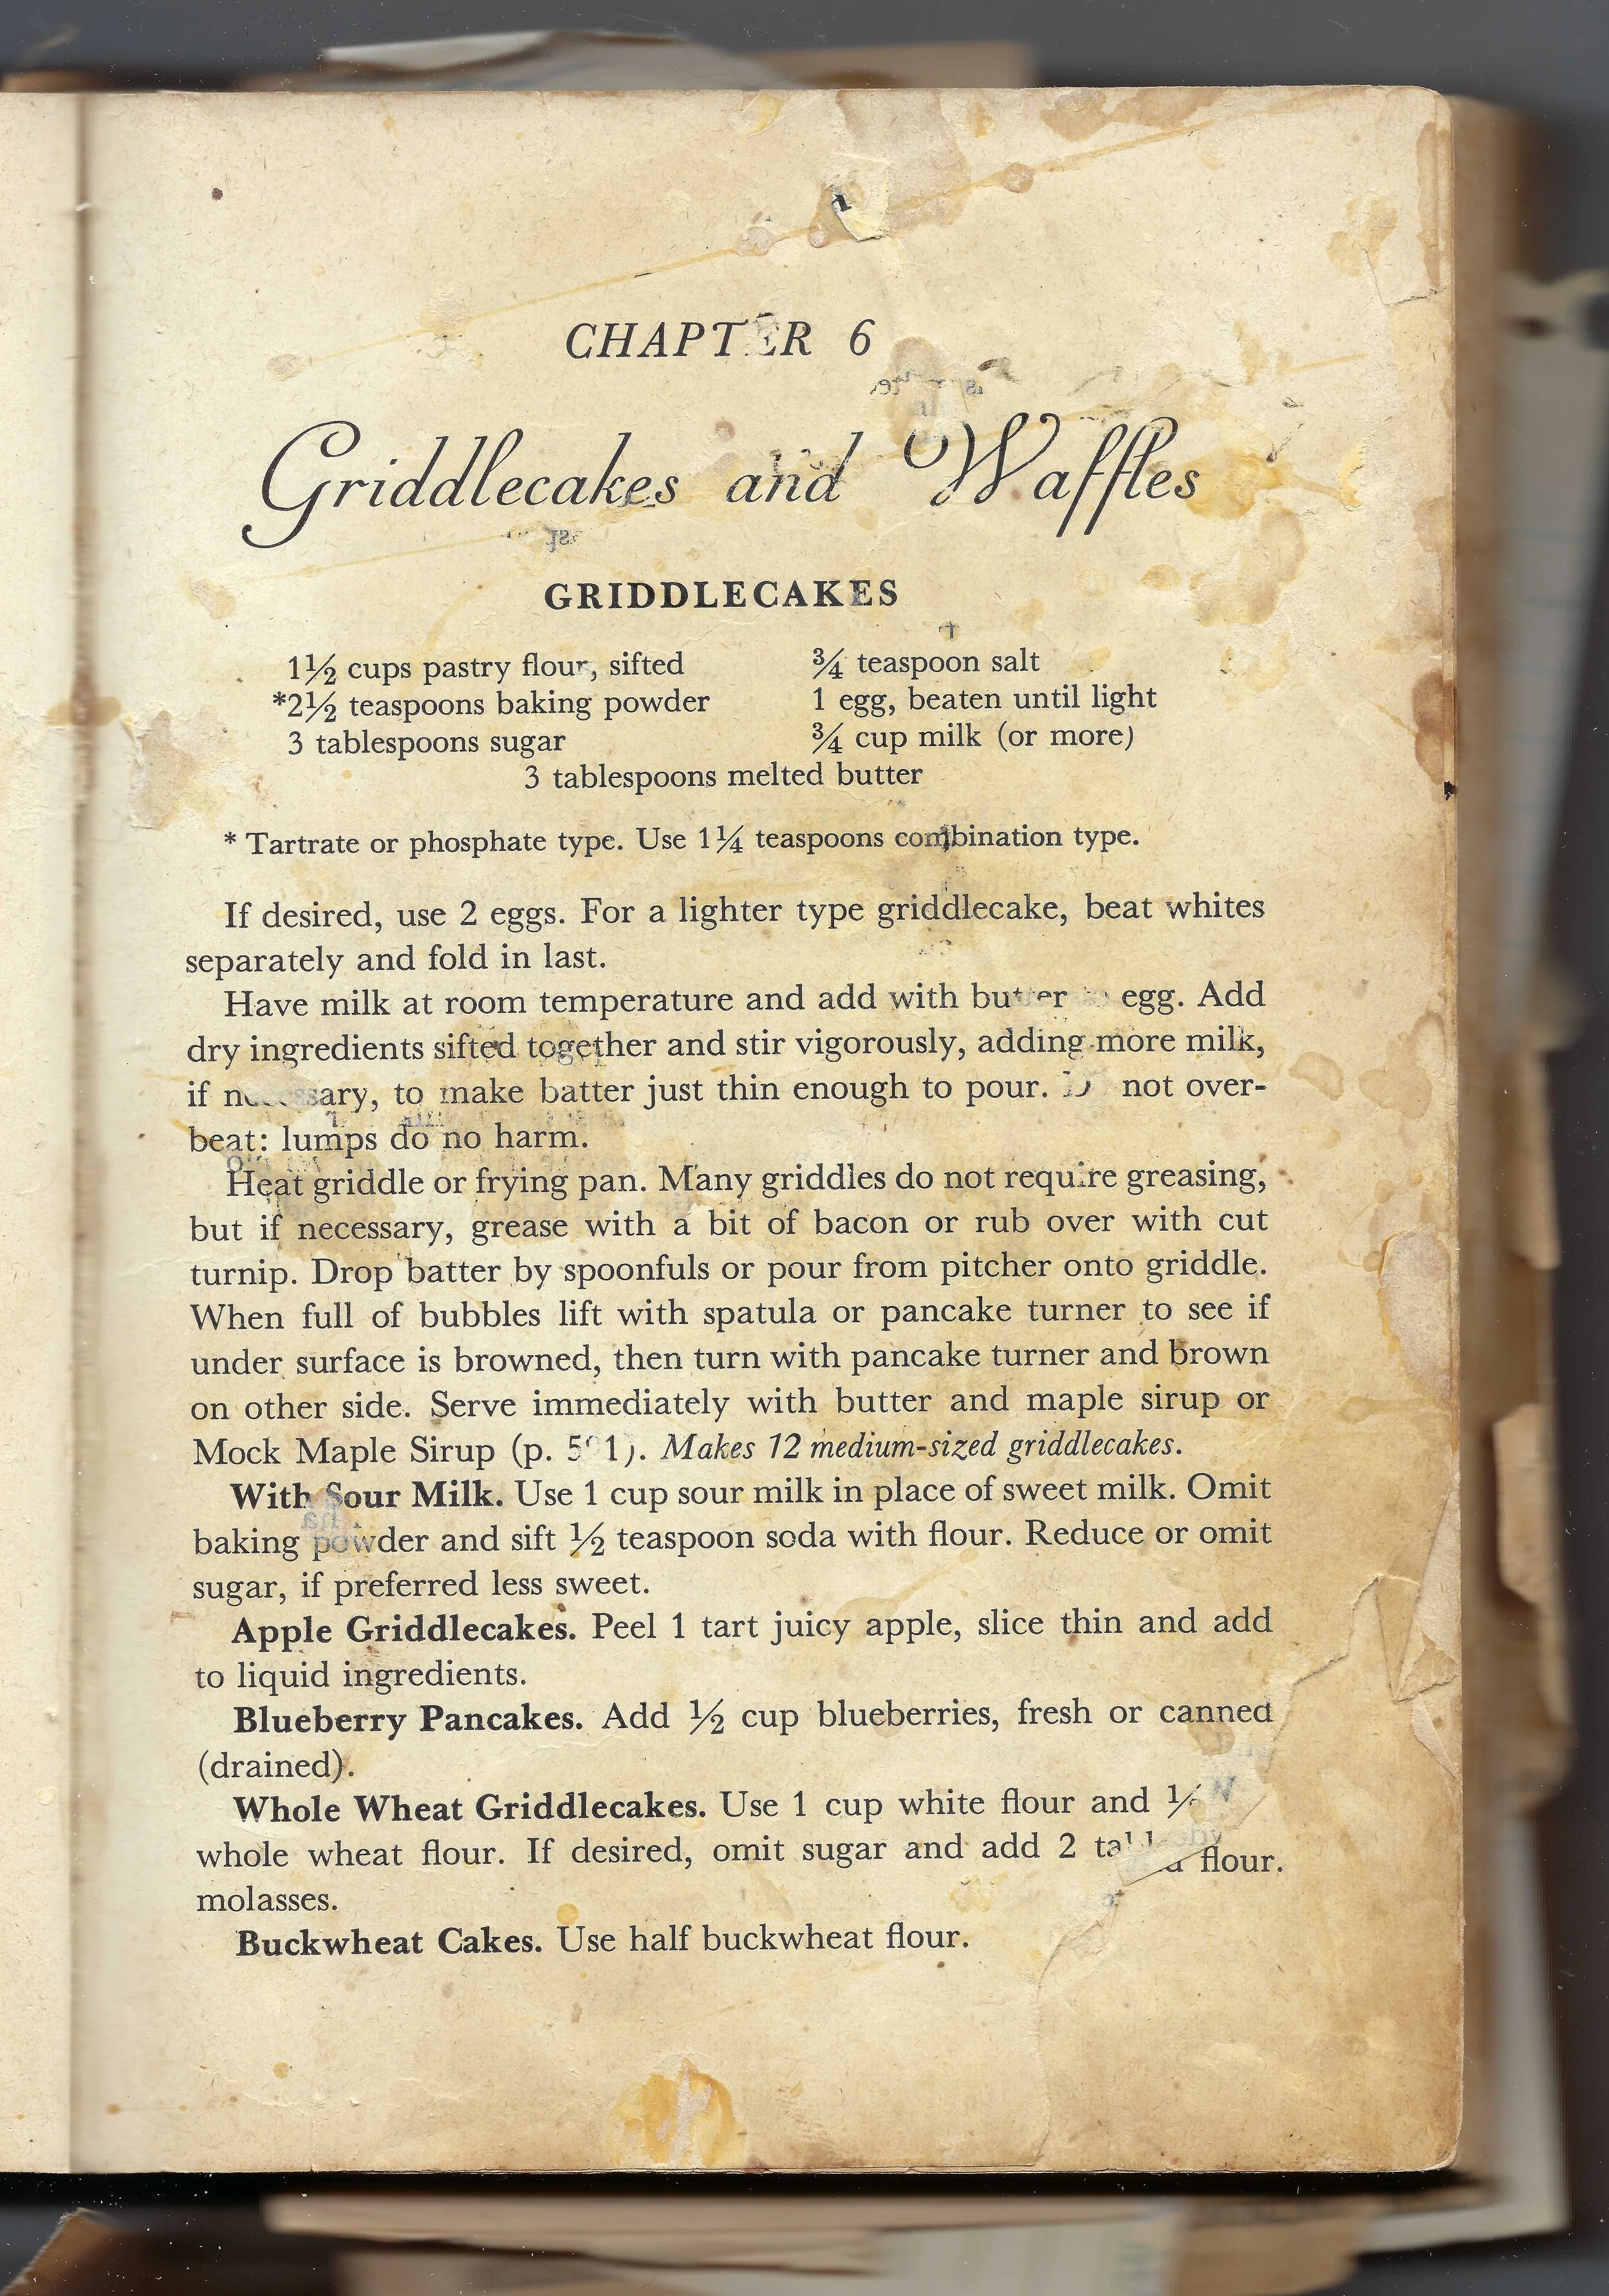 CHAPTER 6
Griddlecakes and Waffles
GRIDDLECAKES
1½ cups pastry flour, sifted
*2½ teaspoons baking powder
3 tablespoons sugar
¾ teaspoon salt
1 egg, beaten until light
¾ cup milk (or more)
3 tablespoons melted butter
* Tartrate or phosphate type. Use 1¼ teaspoons combination type.
If desired, use 2 eggs. For a lighter type griddlecake, beat whites
separately and fold in last.
Have milk at room temperature and add with butter to egg. Add
dry ingredients sifted together and stir vigorously, adding more milk,
if necessary, to make batter just thin enough to pour. Do not over-
beat: lumps do no harm.
Heat griddle or frying pan. Many griddles do not require greasing,
but if necessary, grease with a bit of bacon or rub over with cut
turnip. Drop batter by spoonfuls or pour from pitcher onto griddle.
When full of bubbles lift with spatula or pancake turner to see if
under surface is browned, then turn with pancake turner and brown
on other side. Serve immediately with butter and maple sirup or
Mock Maple Sirup (p. Makes 12 medium-sized griddlecakes.
With Sour Milk. Use 1 cup sour milk in place of sweet milk. Omit
baking powder and sift ½ teaspoon soda with flour. Reduce or omit
sugar, if preferred less sweet.
Apple Griddlecakes. Peel 1 tart juicy apple, slice thin and add
to liquid ingredients.
Blueberry Pancakes. Add ½ cup blueberries, fresh or canned
(drained).
Whole Wheat Griddlecakes. Use 1 cup white flour and
whole wheat flour. If desired, omit sugar and add 2
flour.
molasses.
Buckwheat Cakes. Use half buckwheat flour.